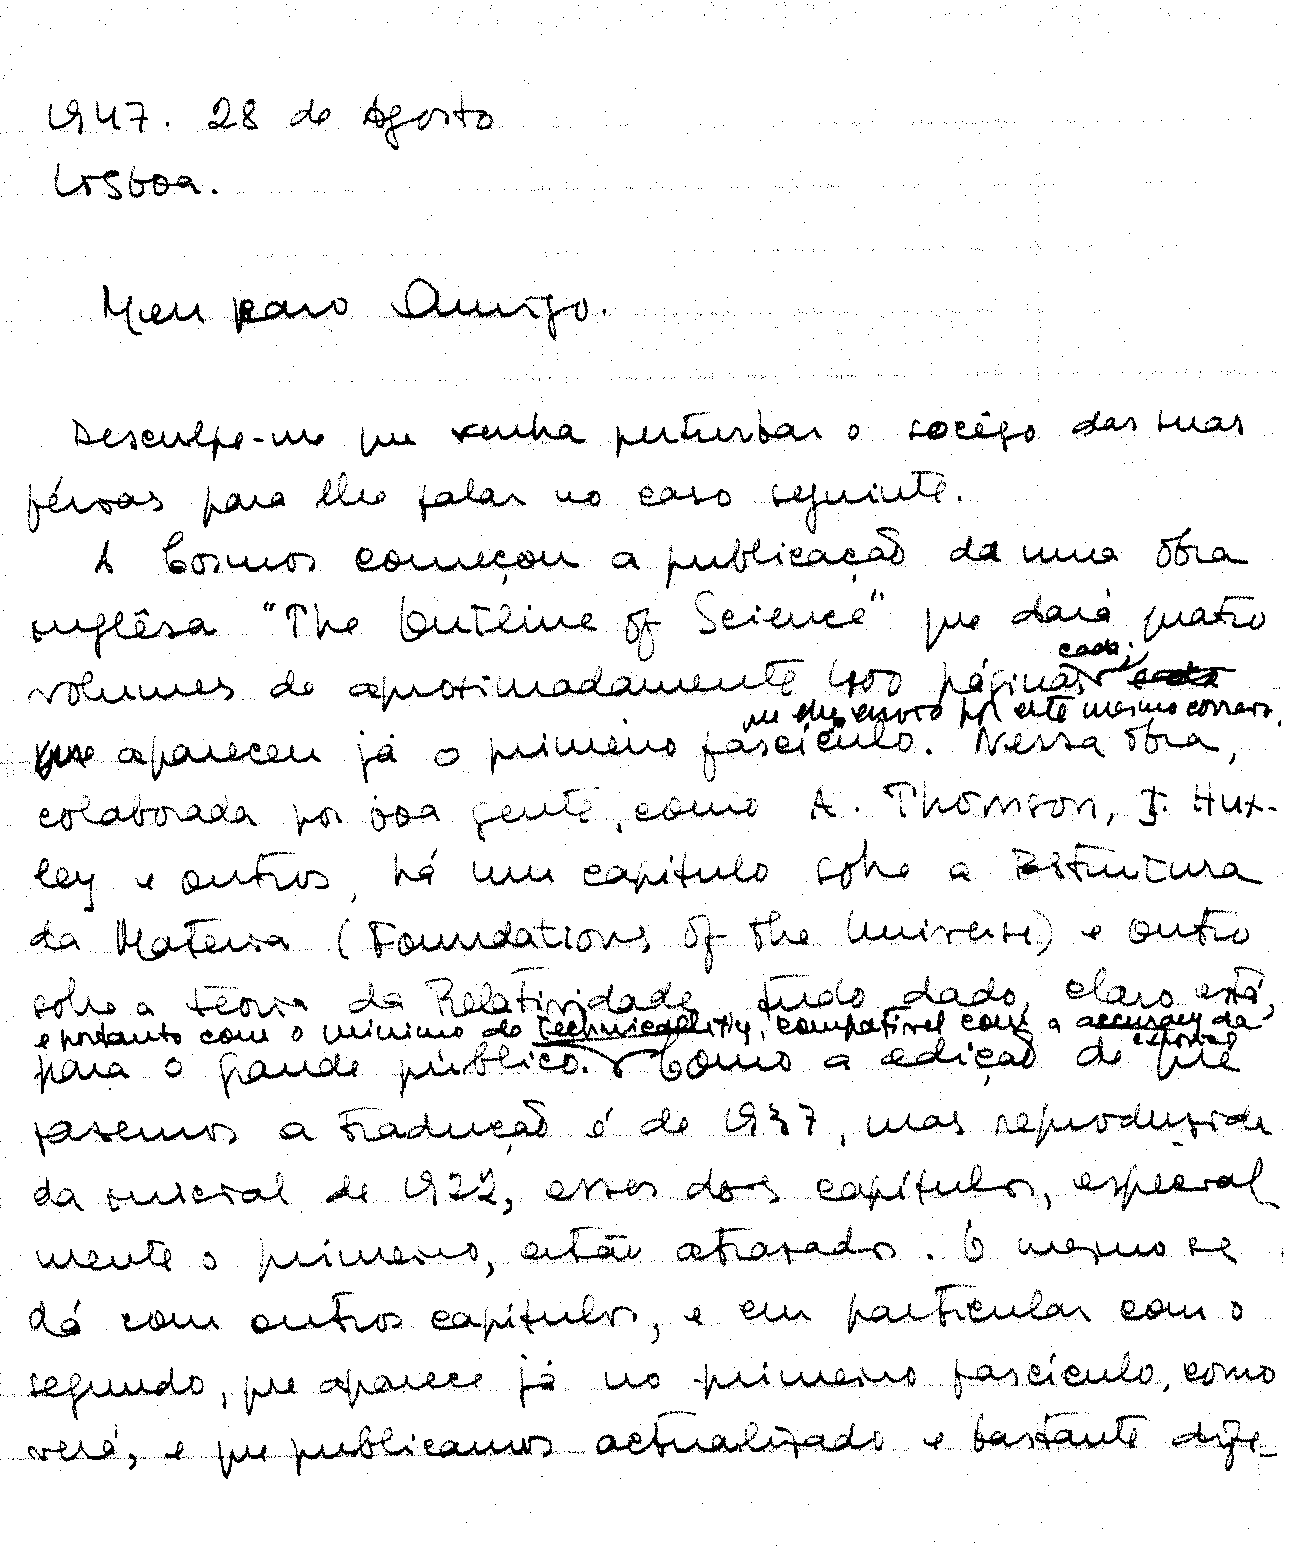 1947. 28 de Agosto
Lisboa.
Meu caro Amigo.
Desculpe-me que venha perturbar o socêgo das suas
férias para lhe falar no caso seguinte.
A Cosmos começou a publicação da uma obra
inglêsa "The Outline of Science" que dará quatro
cada;
volumes de aproximadamente 400 páginas
que lhe envio por este mesmo correio.
apareceu já o primeiro fascículo. Nessa obra,
colaborada por boa gente, como A. Thomson, J. Hux-
ley e outros, há um capítulo sobre a Estrutura
da Materia (Foundations of the Universe) e outro
sobre a teoria da Relatividade, tudo dado, claro está,
e portanto com o mínimo de technicality, compatível com a accuracy da
para o grande público. Como a edição de que
fasemos a tradução é de 1937, mas reprodusida
da inicial de 1922, esses dois capítulos, especial
mente o primeiro, estão atrasados. O mesmo se
dá com outros capítulos, e em particular com o
segundo, que aparece já no primeiro fascículo, como
verá, e que publicamos actualizado e bastante dife-